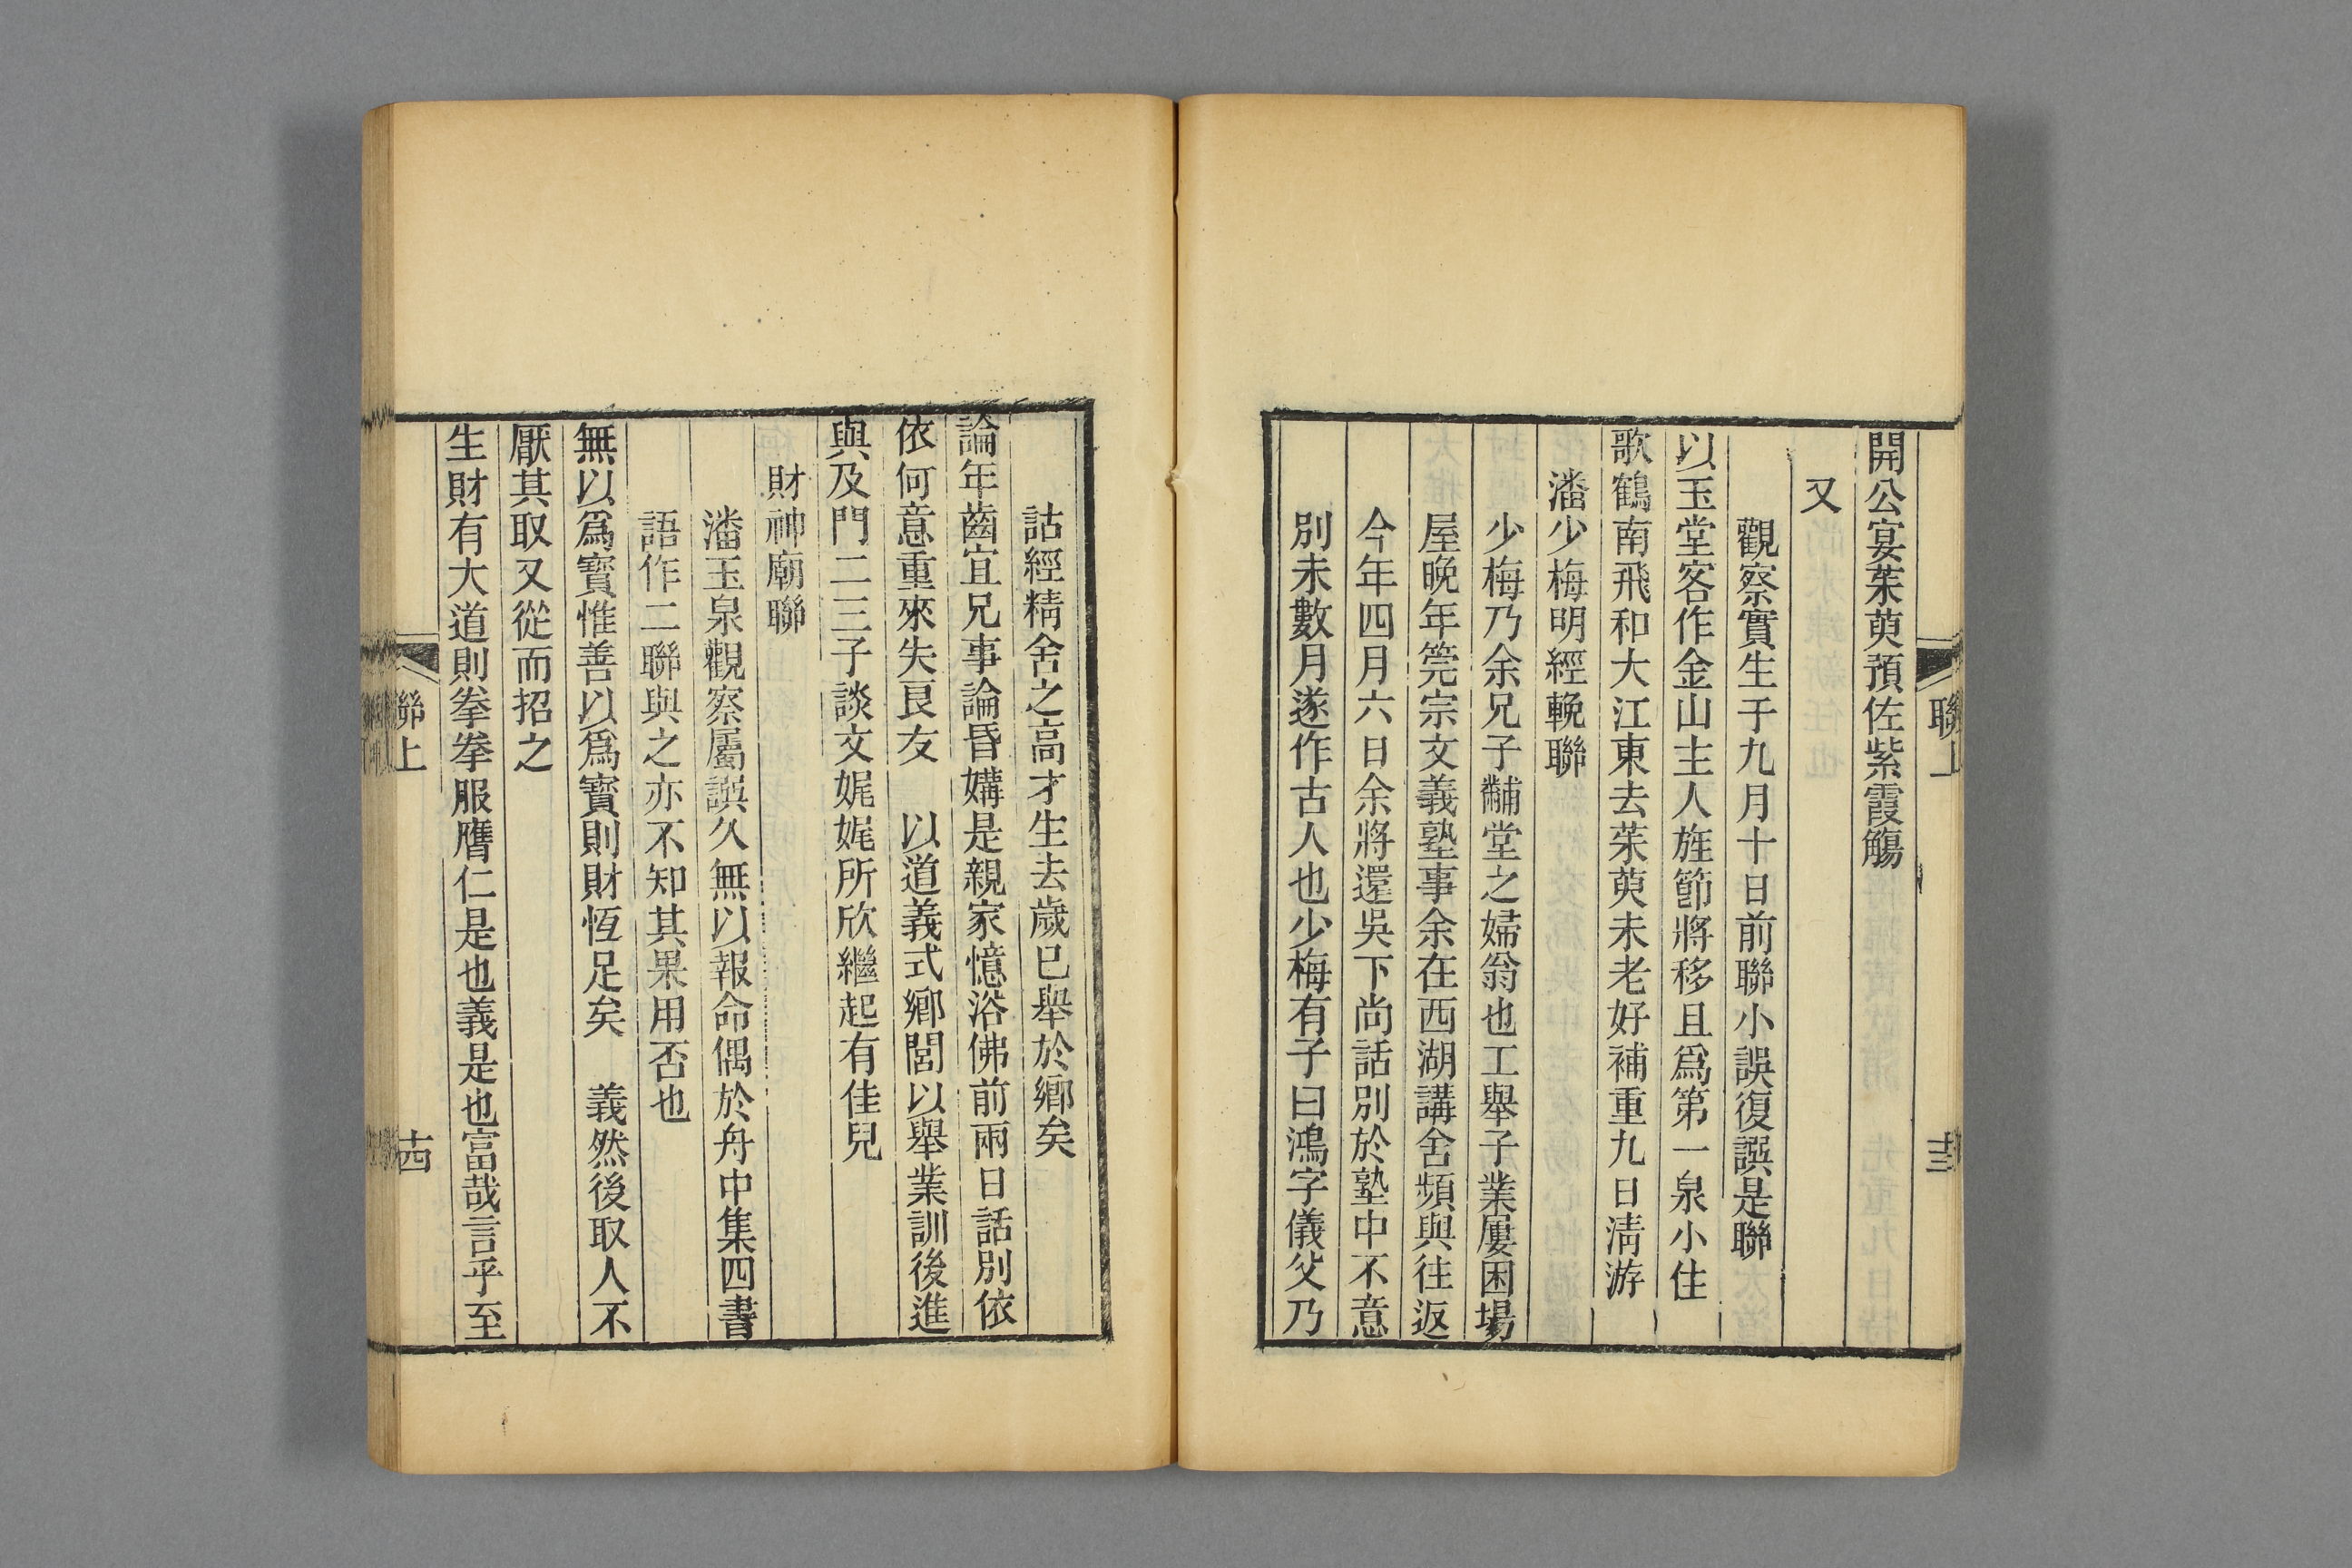 開公宴茱萸預佐紫霞觴
又
觀察實生于九月十日前聯小誤復譔是聯
以玉堂客作金山主人旌節將移且爲第一泉小住
歌鶴南飛和大江東去茱萸未老好補重九日淸游
潘少梅明經輓聯
少梅乃余兄子黼堂之婦翁也工舉子業屢困場
屋晚年筦宗文義塾事余在西湖講舍頻與往返
今年四月六日余將還吳下尚話別於塾中不意
別未數月遂作古人也少梅有子曰鴻字儀父乃
詁經精舍之高才生去歲已舉於鄉矣
論年齒宜兄事論昏媾是親家憶浴佛前兩日話別依
依何意重來失良友　以道義式鄉閭以舉業訓後進
與及門二三子談文娓娓所欣繼起有佳兒
財神廟聯
潘玉泉觀察屬譔久無以報命偶於舟中集四書
語作二聯與之亦不知其果用否也
無以爲寶惟善以爲寶則財恆足矣　義然後取人不
厭其取又從而招之
生財有大道則拳拳服膺仁是也義是也富哉言乎至
聯上
十四
聯上
十三